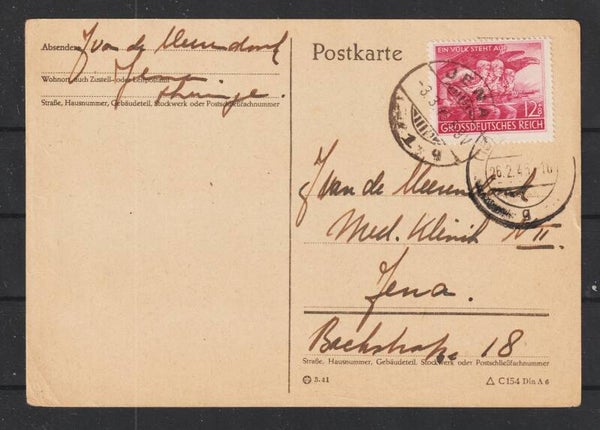 Absender: J van de Meerendonk
Jena
Wohnort, auch Zustell- oder Leitpostamt
Thüringen
Straße, Hausnummer, Gebäudeteil, Stockwerk oder Postschließfachnummer
Postkarte
EIN VOLK STEHT AUF
12+8
GROSSDEUTSCHES REICH
JENA
g
26.2.45
g
J van de Meerendonk
Med. Klinik N II.
Jena.
Bachstraße 18
Straße, Hausnummer, Gebäudeteil, Stockwerk oder Postschließfachnummer
5.41
C 154 Din A 6